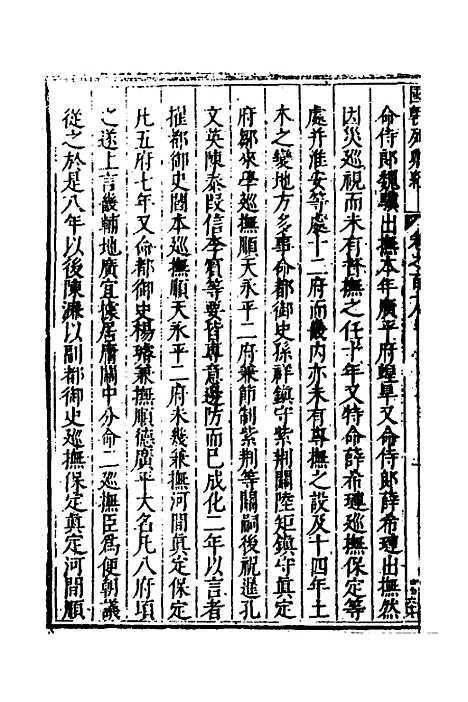 國朝列卿紀 卷之一百十八
命侍郎魏驥出撫本年廣平府蝗旱又命侍郎薛希璉出撫然
因災巡視而未有督撫之任十年又特命薛希璉巡撫保定等
處并淮安等處十二府而畿內亦未有專撫之設及十四年土
木之變地方多事命都御史孫祥鎮守紫荆關陸矩鎮守真定
府鄒來學巡撫順天永平二府兼節制紫荆等關嗣後祝暹孔
文英陳泰叚信李賔等要皆專意邊防而已成化二年以言者
擢都御史閻本巡撫順天永平二府未幾兼撫河間眞定保定
凡五府七年又命都御史楊璿兼撫順德廣平大名凡八府項
之遂上言畿輔地廣宜據居庸關中分命二巡撫臣爲便朝議
從之於是八年以後陳濂以副都御史巡撫保定眞定河間順